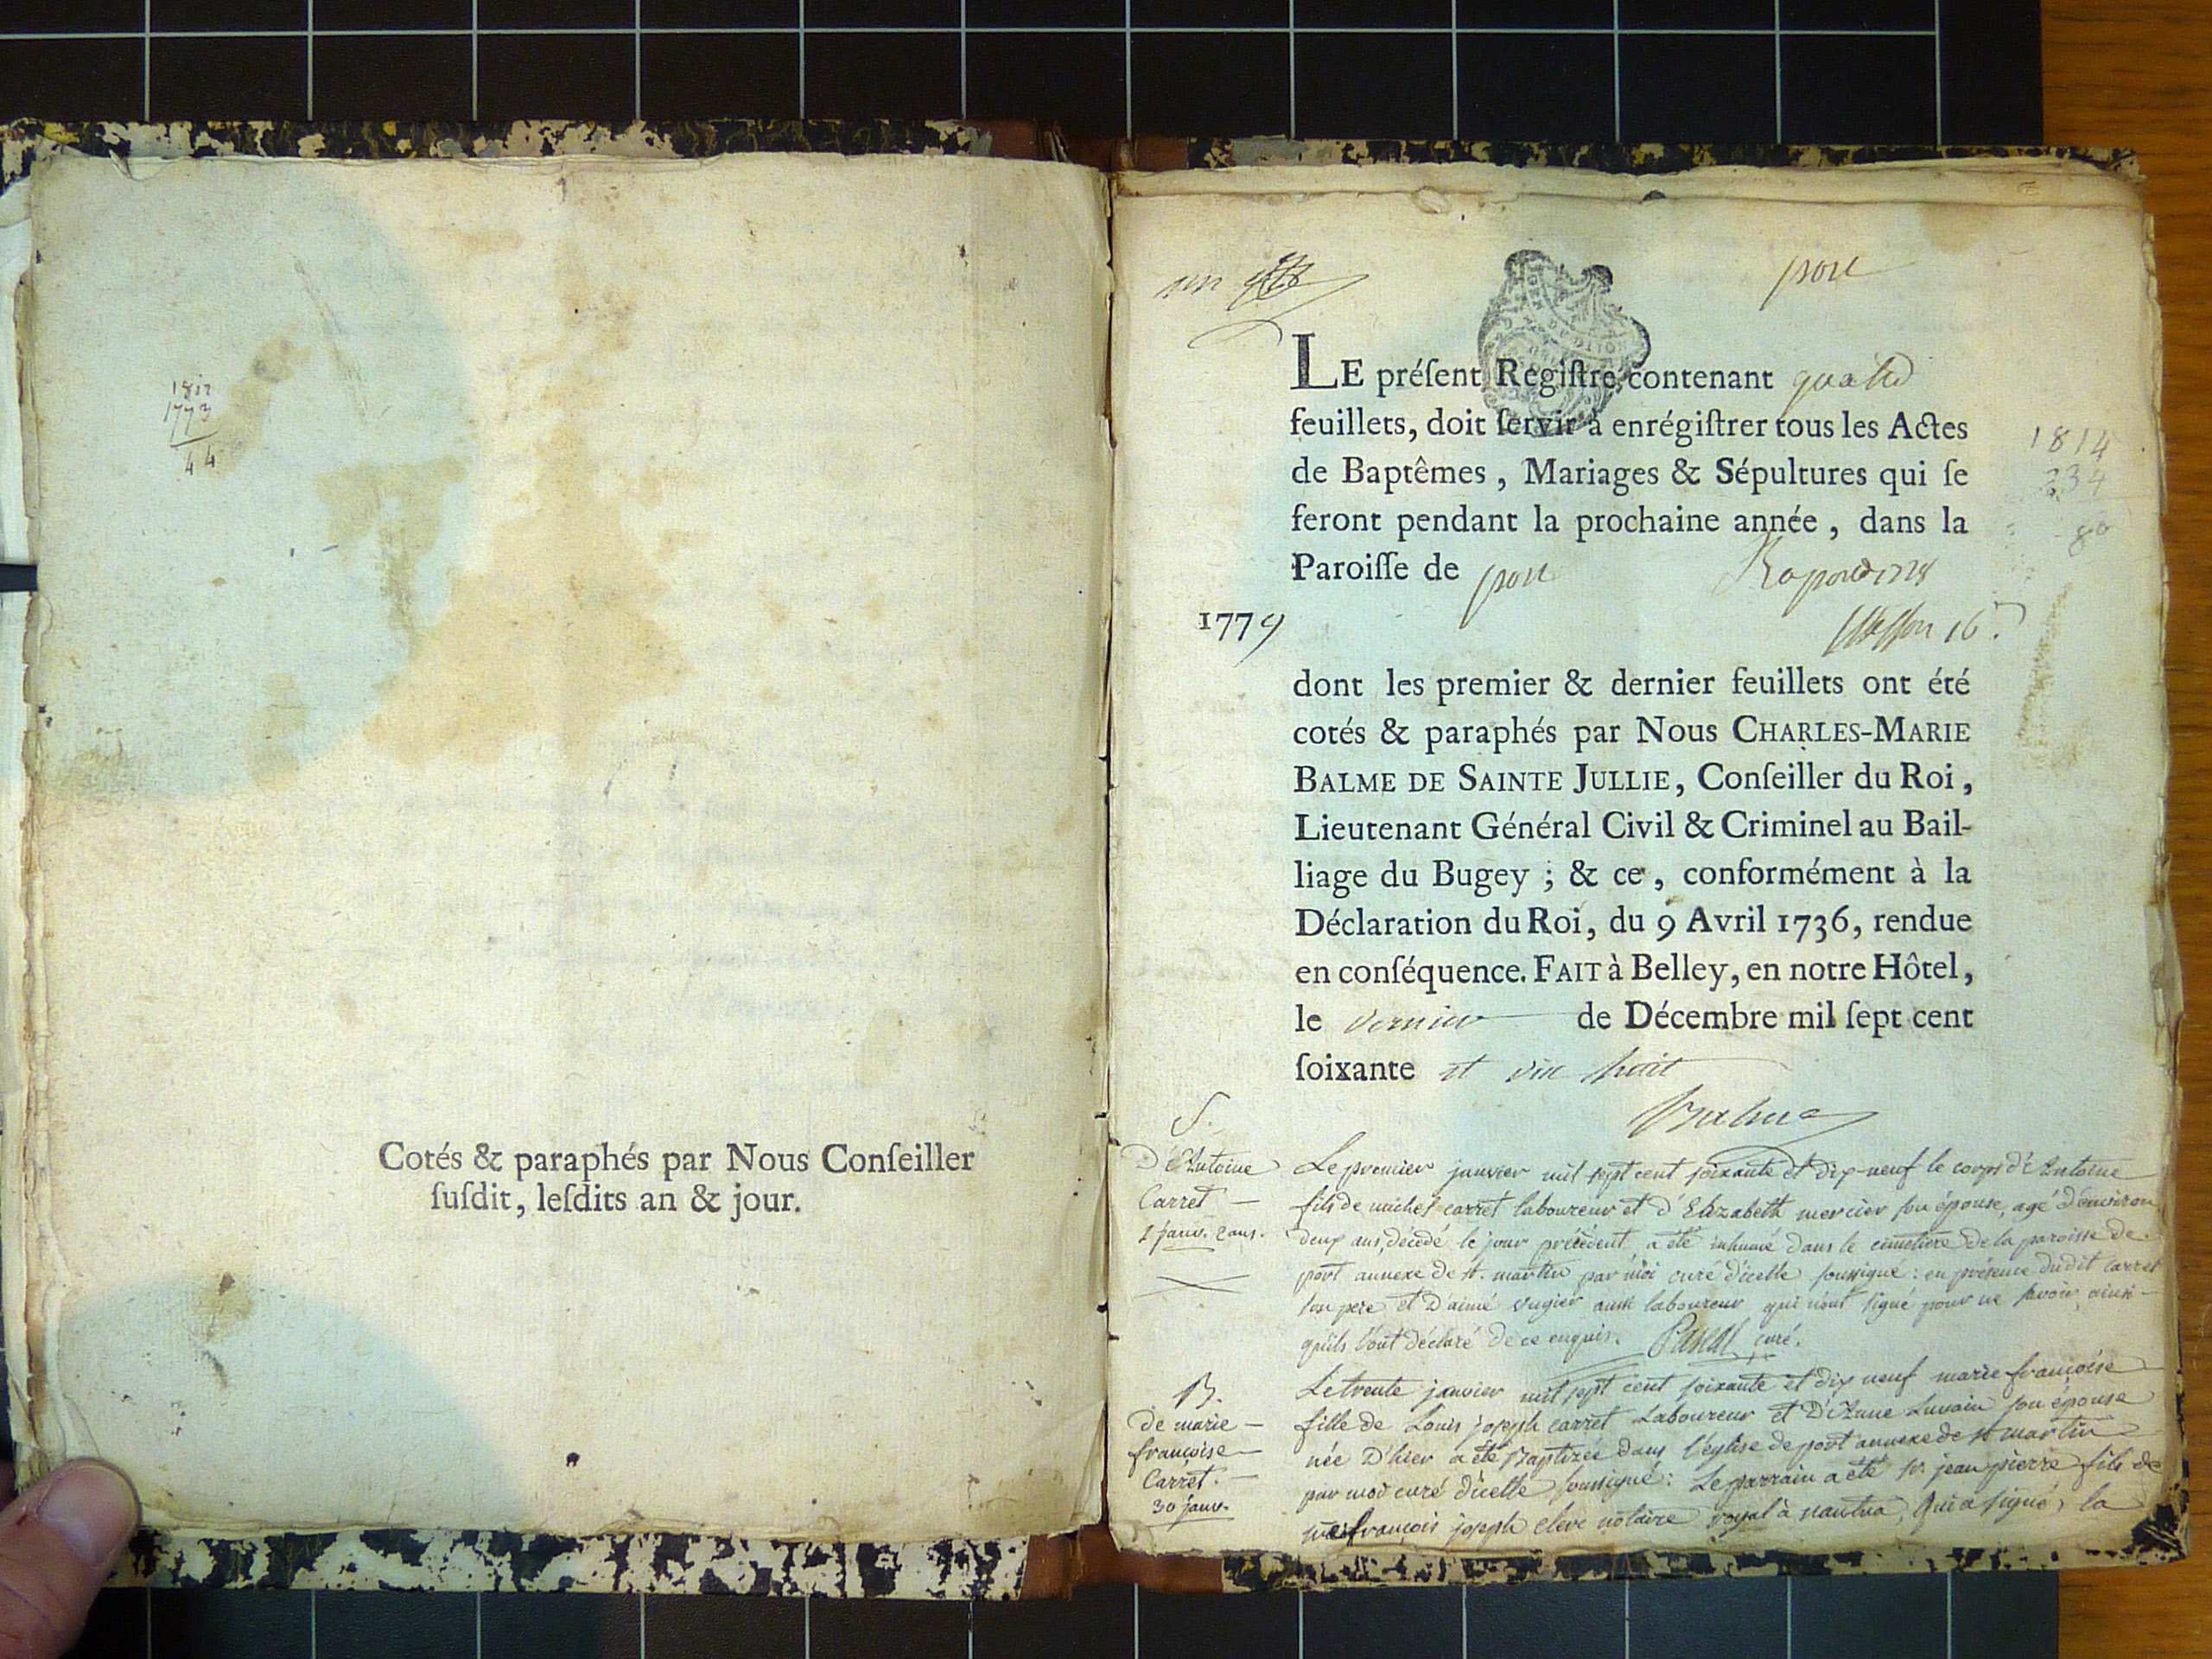 1773
44
Cotés & paraphés par Nous Conſeiller
ſuſdit, leſdits an & jour.
un
port
LE préſent Regiſtre, contenant quatre
feuillets, doit ſervir à enrégiſtrer tous les Actes
de Baptêmes, Mariages & Sépultures qui ſe
feront pendant la prochaine année, dans la
Paroiſſe de port
1779
1814
234
80
dont les premier & dernier feuillets ont été
cotés & paraphés par Nous CHARLES-MARIE
BALME DE SAINTE JULLIE, Conſeiller du Roi,
Lieutenant Général Civil & Criminel au Bail-
liage du Bugey; & ce, conformément à la
Déclaration du Roi, du 9 Avril 1736, rendue
en conſéquence. FAIT à Belley, en notre Hôtel,
le dernier de Décembre mil ſept cent
ſoixante et dix huit
S.
D'Antoine
Carret
1 janv. 2 ans.
Le premier janvier mil sept cent soixante et dix-neuf le corps d'Antoine
fils de michel carret laboureur et d'Elizabeth mercier son épouse, agé d'environ
deux ans, décédé le jour précédent, a été inhumé dans le cimetiere de la paroisse de
port annexe de st. martin par moi curé d'icelle soussigné: en présence dudit carret
son pere et d'aimé ougier aussi laboureur qui n'ont signé pour ne savoir, ainsi-
qu'ils l'ont déclaré de ce enquis. Pascal curé.
B.
de marie-
françoise
Carret.
30 janv.
Le trente janvier mil sept cent soixante et dix neuf marie françoise
fille de Louis joseph carret Laboureur et D'Anne son épouse
née D'hier a été Baptizée dans l'église de port annexe de st martin
par moi curé d'icelle soussigné: Le parrain a été sr. jean pierre fils de
françois joseph eleve notaire royal à nantua, Qui a signé, la